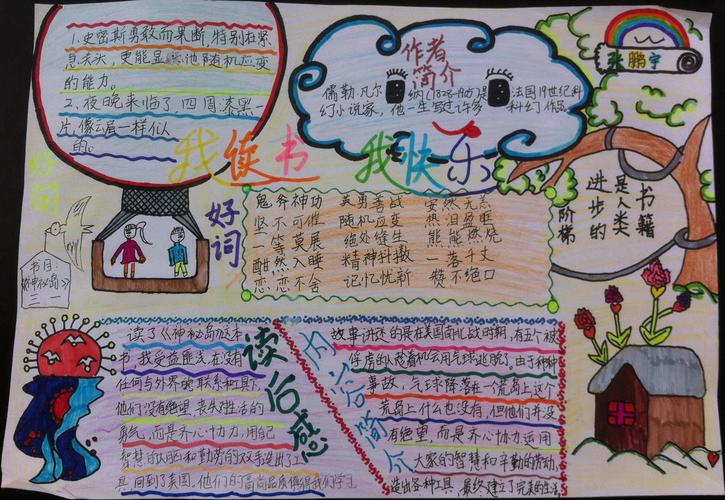 1、史密斯勇敢而果断,特别在紧
急关头,更能显示他随机应变
的能力。
2、夜晚来临了,四周漆黑一
片,像云眉一样似
的。
好句
作者
简介
儒勒·凡尔纳(1828-1905)是法国19世纪科
幻小说家,他一生写过许多科幻作品。
张鹏宇
我读书 我快乐
好词
鬼斧神功 英勇善战 安然无恙
坚不可摧 随机应变 热泪盈眶
一筹莫展 绝处缝生 熊熊燃烧
酣然入睡 精神抖擞 一落千丈
恋恋不舍 记忆忧新 赞不绝口
书籍
是人类
进步的
阶梯
书目:
《神秘岛》
三、一
读后感
读了《神秘岛》这本
书,我受益匪浅,在没有
任何与外界的联系和工具下,
他们没有绝望,丧失对生活的
勇气,而是齐心协力,用自己
智慧的大脑和勤劳的双手造出了工
具,回到了美国,他们的高尚品质值得我们学习
内容简介
故事讲述的是在美国南北战时期,有五个被
俘虏的人趁着机会用气球逃脱了。由于种种
事故,气球降落在一个荒岛上这个
荒岛上什么也没有,但他们并没
有绝望,而是齐心协力运用
大家的智慧和辛勤的劳动,
造出各种工具,最终建立了完美的生活